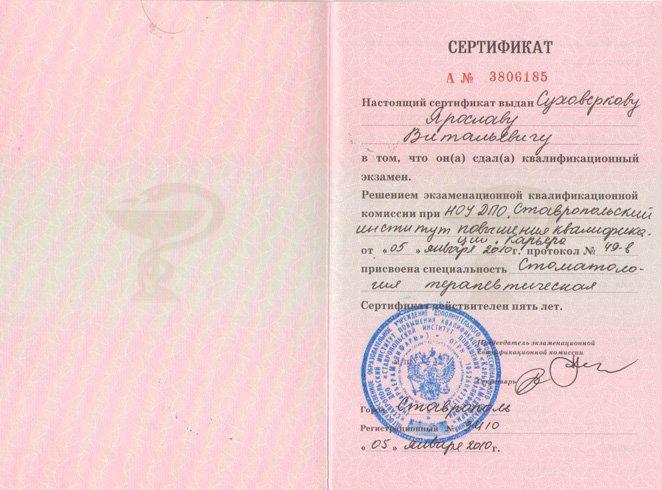 СЕРТИФИКАТ
А № 3806185
Настоящий сертификат выдан Суховеркову
Ярославу
Витальевичу
в том, что он(а) сдал(а) квалификационный
экзамен.
Решением экзаменационной квалификационной
комиссии при НОУ ДПО „Ставропольский
институт повышения квалифика-
ции „Карьера
от « 05 » января 2010г. протокол № 49-в
присвоена специальность Стоматоло-
гия терапевтическая
Сертификат действителен пять лет.
Председатель экзаменационной
квалификационной комиссии
Секретарь
Город Ставрополь
Регистрационный №
« 05 » января 2010г.